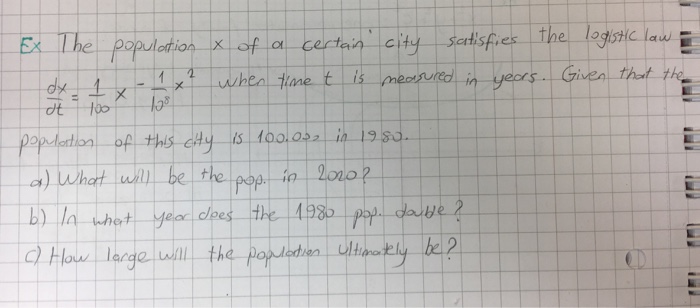 Ex The population x of a certain city satisfies the logistic law
dx/dt = 1/100 x - 1/10⁸ x² when time t is measured in years. Given that the
population of this city is 100.000 in 1980.
a) What will be the pop. in 2020?
b) In what year does the 1980 pop. double?
c) How large will the population ultimately be?